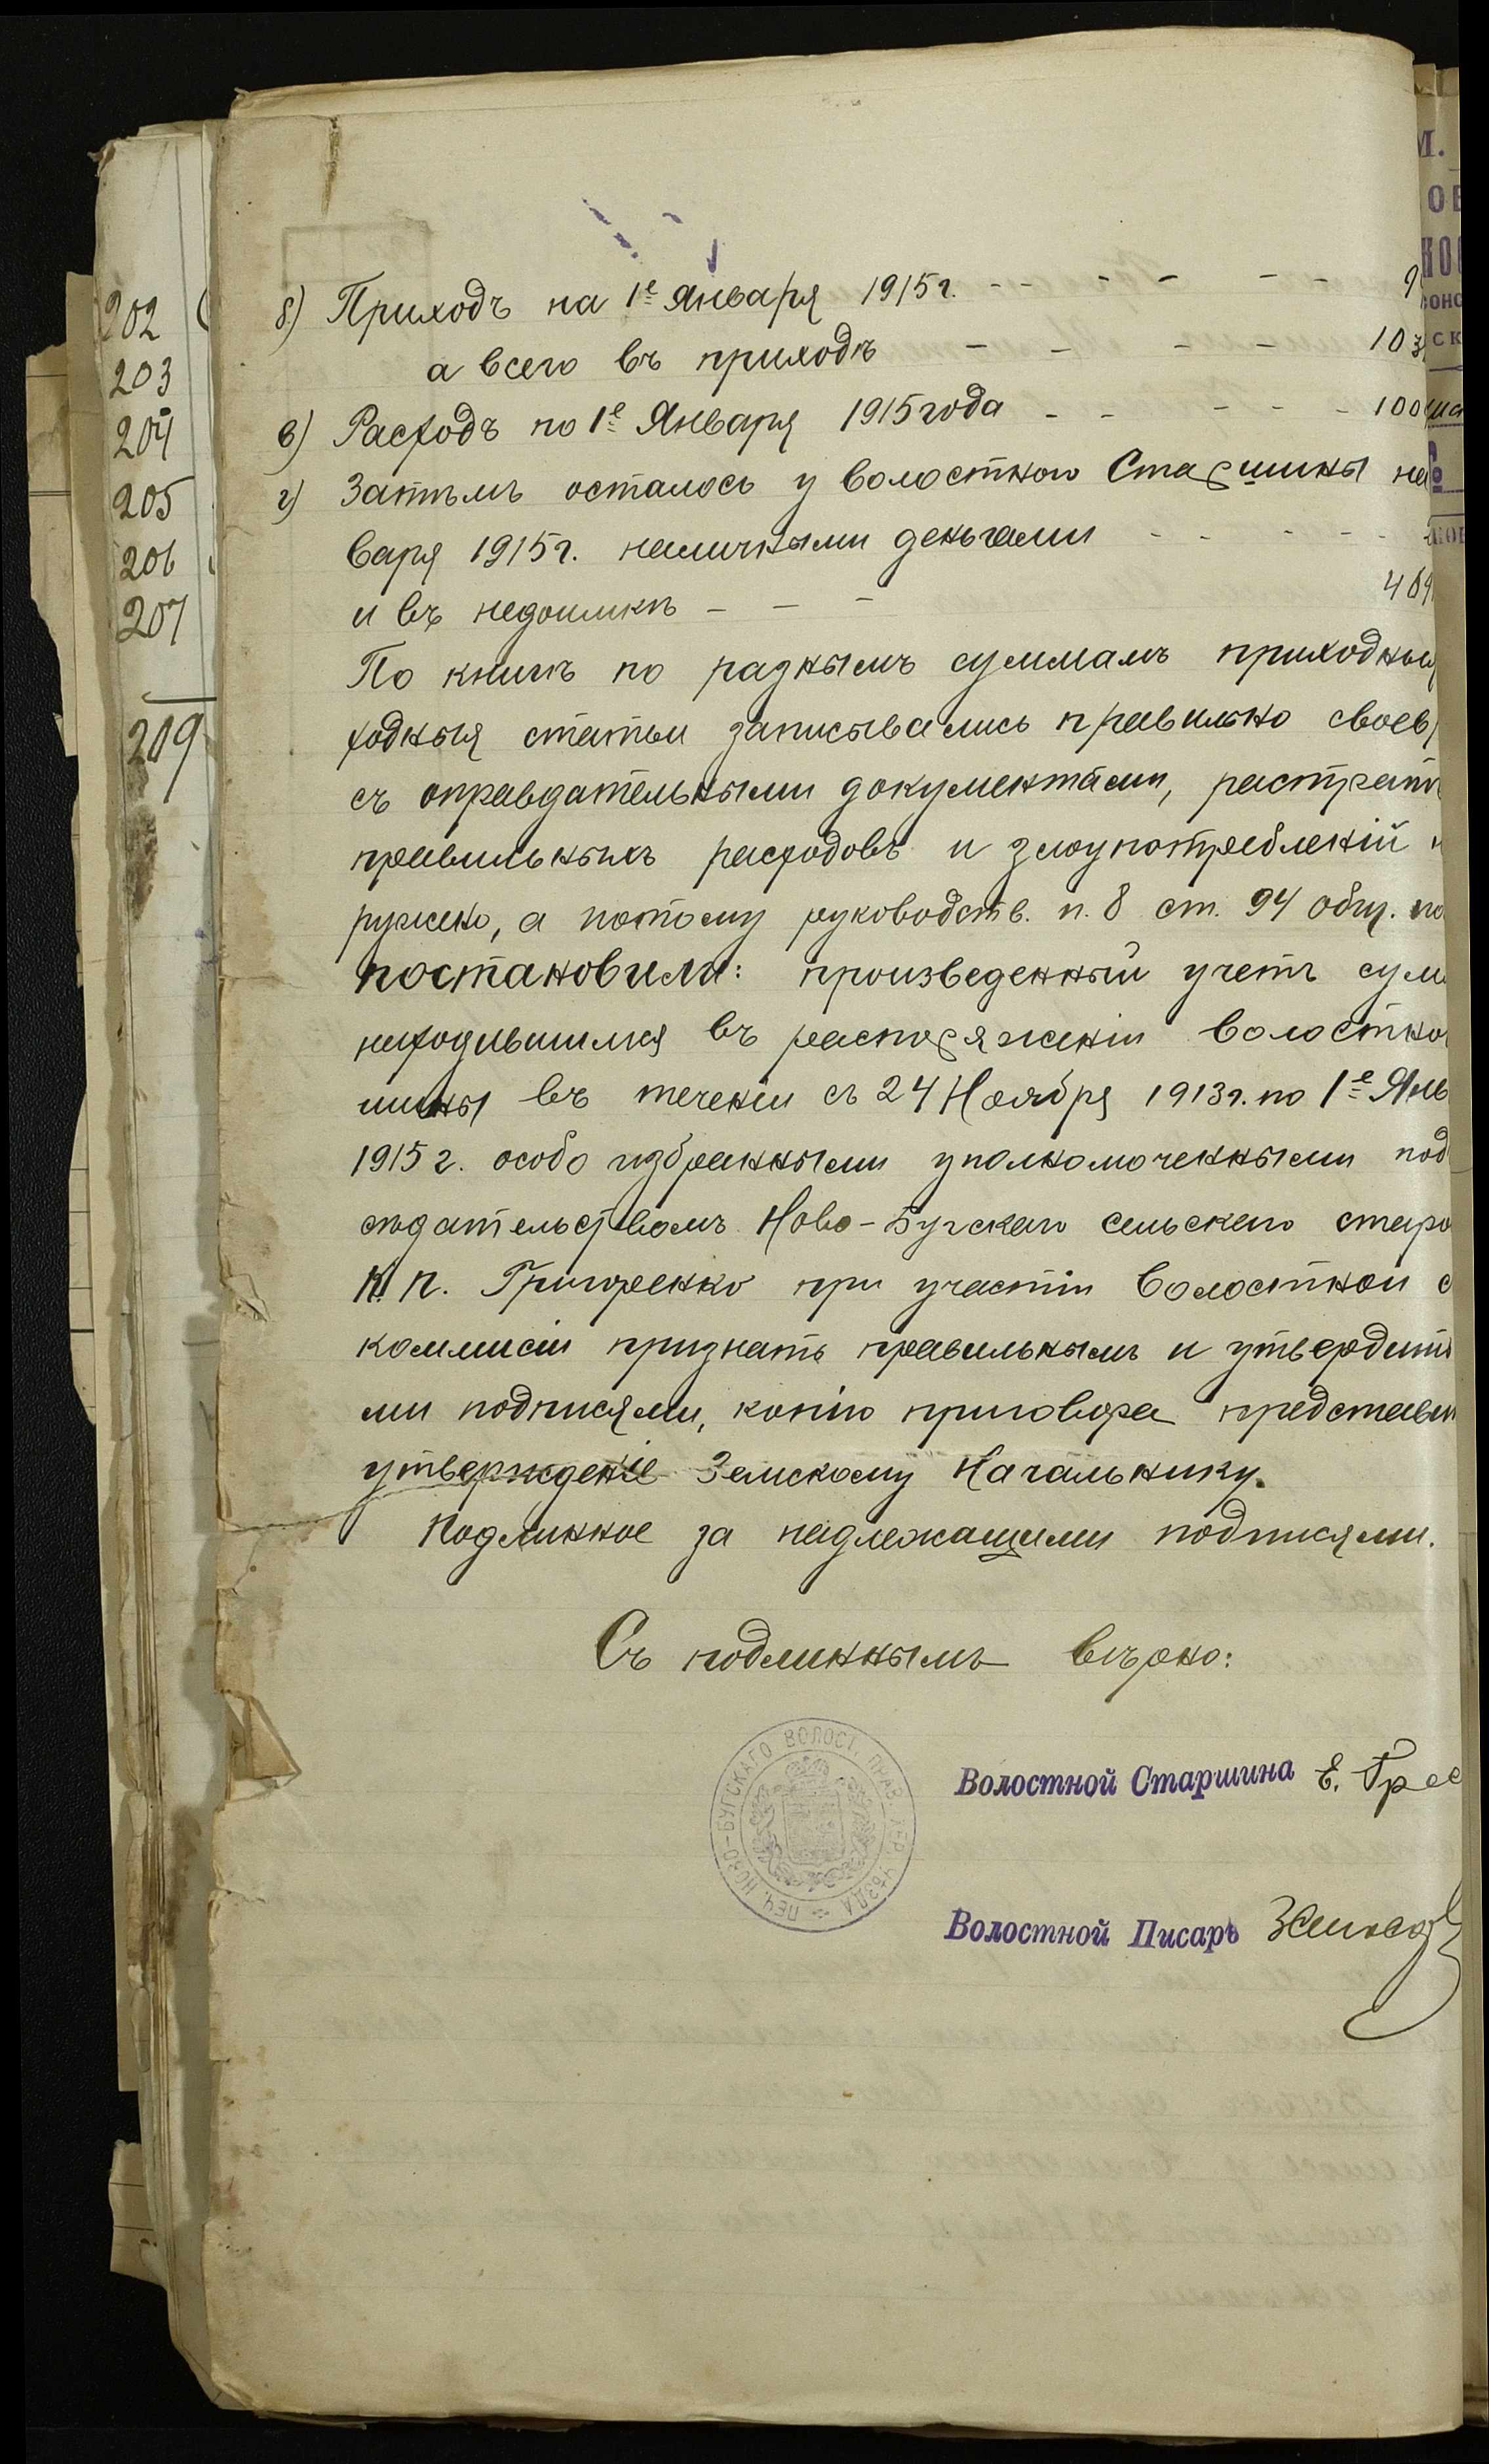 202
203
204
205
206
207
209
б) Приходъ на 1е Января 1915 г. - - - - - - 9
а всего въ приходѣ - - - - 103
в) Расходъ по 1е Января 1915 года - - - - - 100
г) Затѣмъ осталось у волостного Старшины на
варя 1915 г. наличными деньгами - - - - -
и въ недоимкѣ - - - 469
По книгѣ по разнымъ суммамъ приходныя
ходныя статьи записывались правильно своев
съ оправдательными документами, растрат
правильныхъ расходовъ и злоупотребленій н
ружено, а потому руководств. п. 8 ст. 94 общ. по
постановили: произведенный учетъ сум
находившимся въ распоряженіи волостно
шины въ теченіи съ 24 Ноября 1913 г. по 1е Янв
1915 г. особо избранными уполномоченными под
сѣдательствомъ Ново-Бугскаго сельскаго старо
К. П. Григоренко при участіи Волостной с
коммисіи признать правильнымъ и утвердить
ми подписями, копію приговора представи
утвержденіе Земскому Начальнику.
Подлинное за надлежащими подписями.
Съ подлиннымъ вѣрно:
ПЕЧ. НОВО-БУГСКАГО ВОЛОСТ. ПРАВ. ХЕР. УѢЗДА
Волостной Старшина Е. Гре
Волостной Писарь